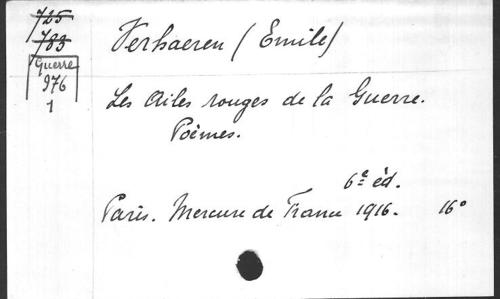 725
783
Guerre
976
1
Verhaeren (Emile)
Les Ailes rouges de la Guerre.
Poèmes.
6e éd.
Paris. Mercure de France 1916. 16°